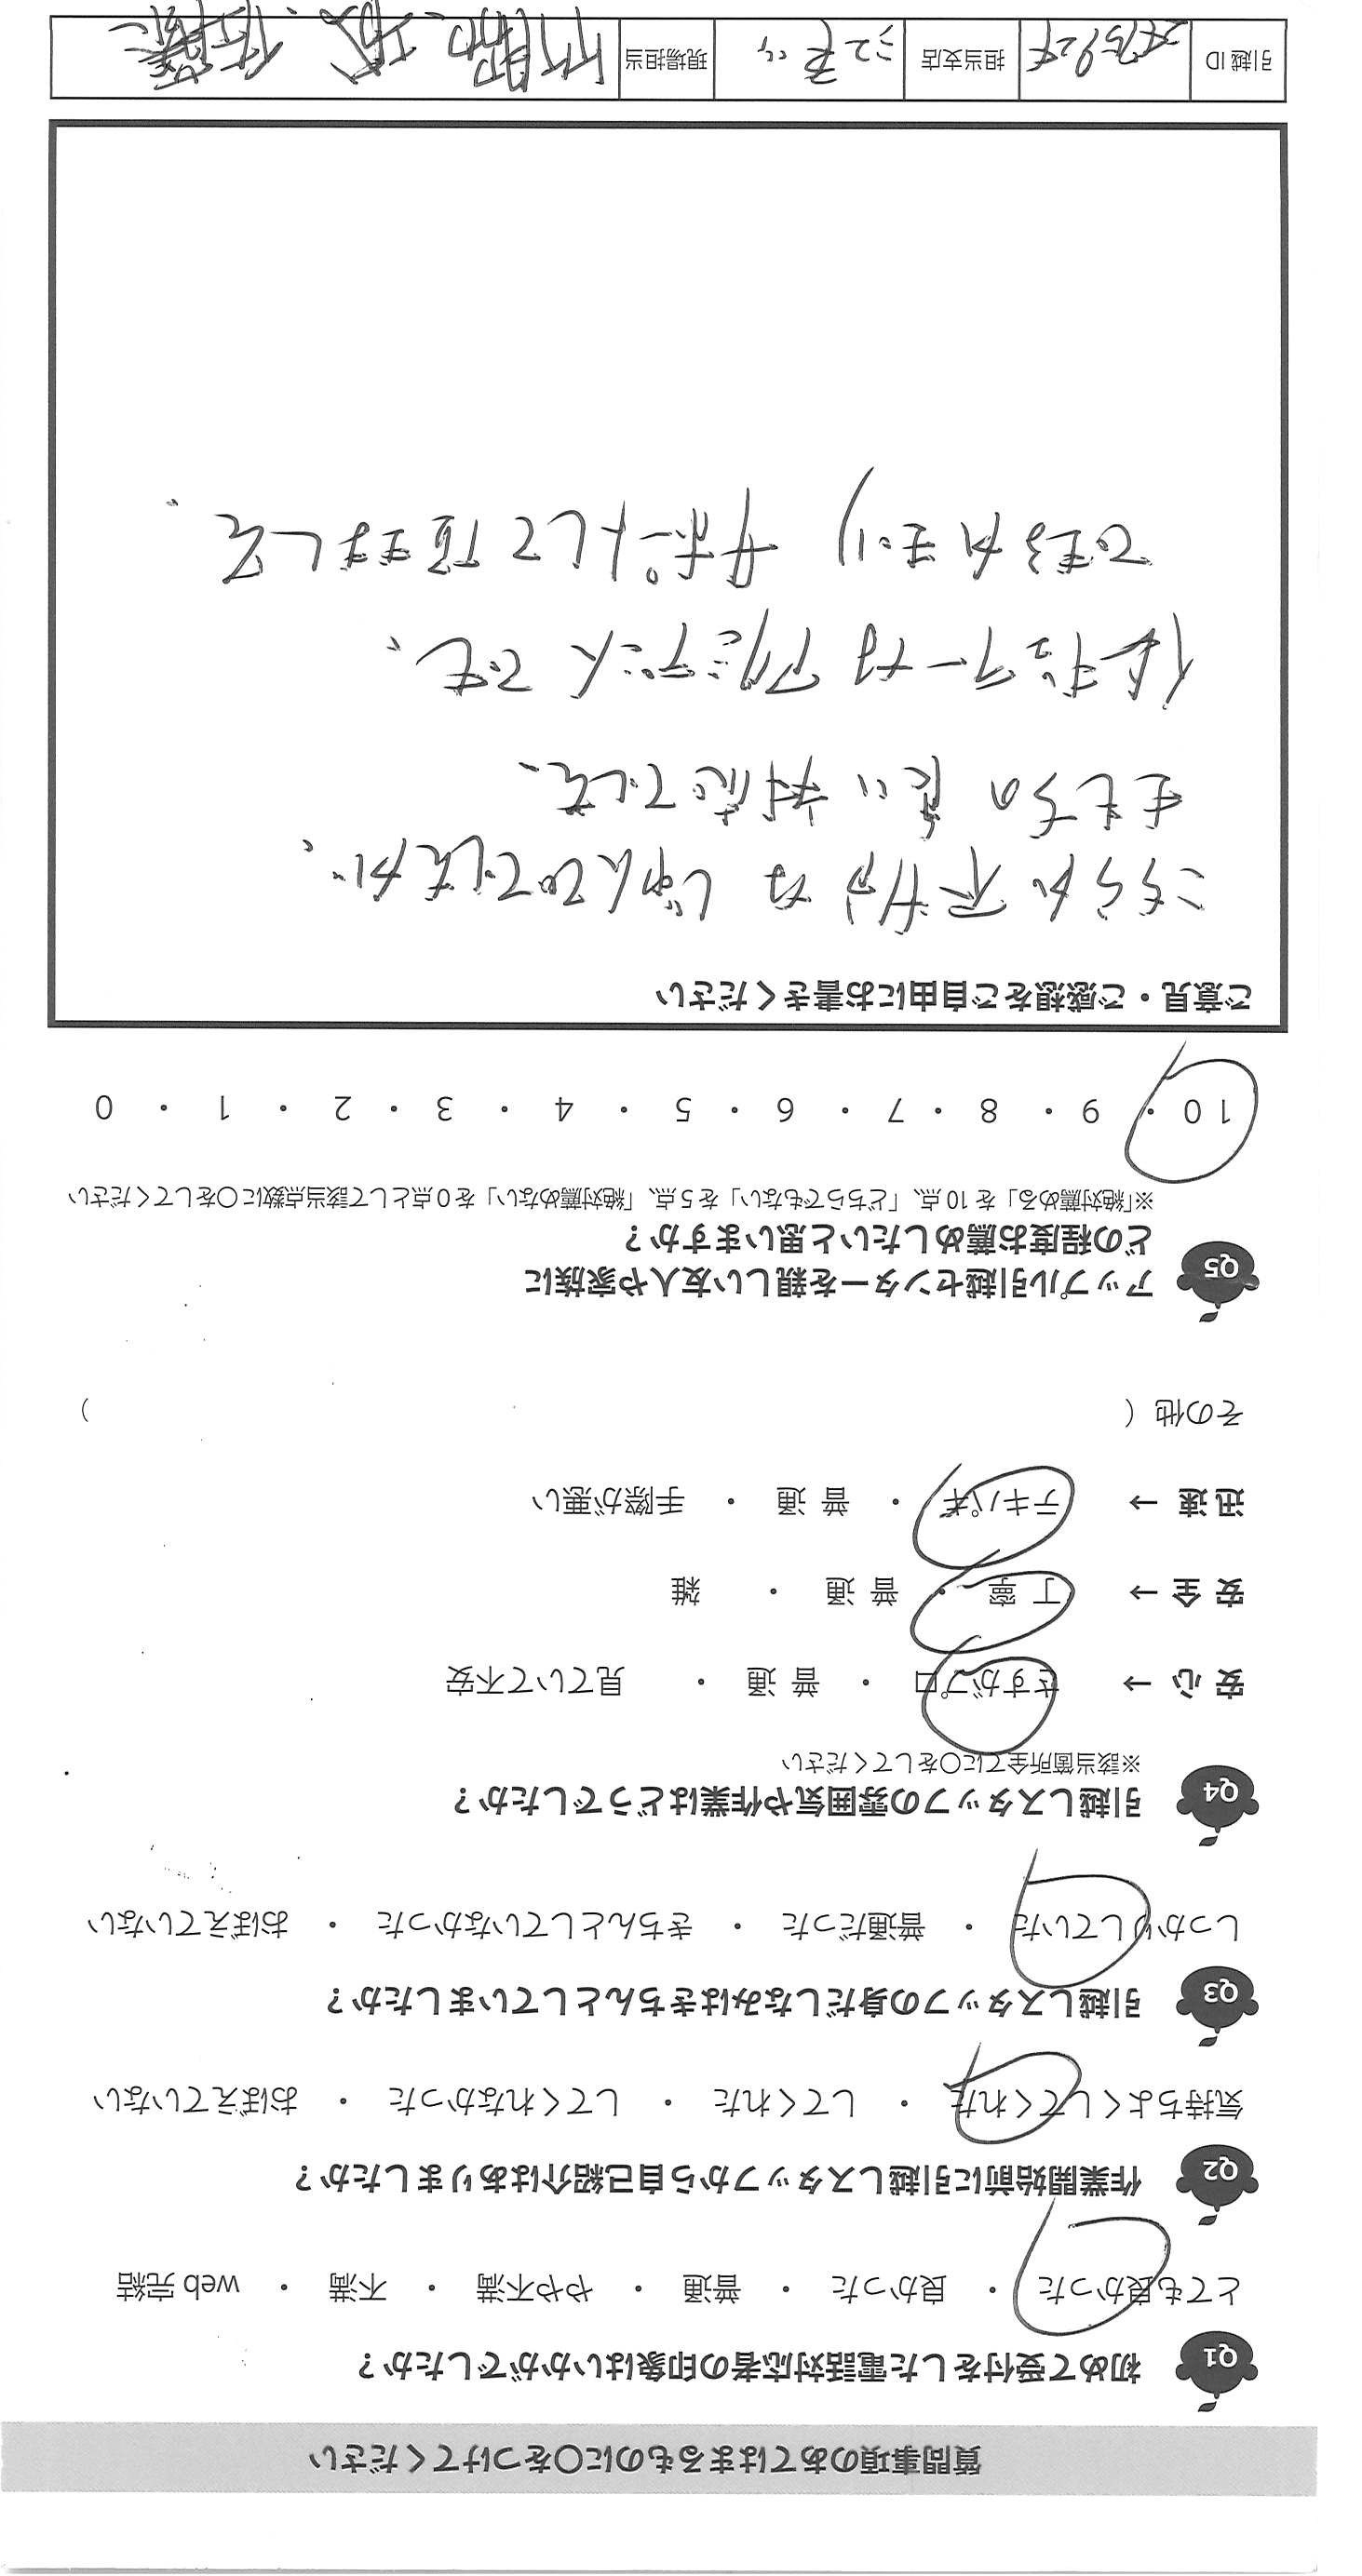 質問事項のあてはまるものに〇をつけてください
Q1 初めて受付をした電話対応者の印象はいかがでしたか？
とても良かった ・ 良かった ・ 普通 ・ やや不満 ・ 不満 ・ web 完結
Q2 作業開始前に引越しスタッフから自己紹介はありましたか？
気持ちよくしてくれた ・ してくれた ・ してくれなかった ・ おぼえていない
Q3 引越しスタッフの身だしなみはきちんとしていましたか？
しっかりしていた ・ 普通だった ・ きちんとしていなかった ・ おぼえていない
Q4 引越しスタッフの雰囲気や作業はどうでしたか？
※該当箇所全てに〇をしてください
安 心 → さすがプロ ・ 普 通 ・ 見ていて不安
安 全 → 丁 寧 ・ 普 通 ・ 雑
迅 速 → テキパキ ・ 普 通 ・ 手際が悪い
その他（ ）
Q5 アップル引越センターを親しい友人や家族に
どの程度お薦めしたいと思いますか？
※「絶対薦める」を 10 点、「どちらでもない」を 5 点、「絶対薦めない」を 0 点として該当点数に〇をしてください
10 ・ 9 ・ 8 ・ 7 ・ 6 ・ 5 ・ 4 ・ 3 ・ 2 ・ 1 ・ 0
ご意見・ご感想をご自由にお書きください
こちらが不十分な じゅんびでしたが、
きもちの良い対応でした、
イレギュラーなアクシデントでも、
できるかぎり サポートして頂きました。
引越 ID 担当支店 江東 現場担当